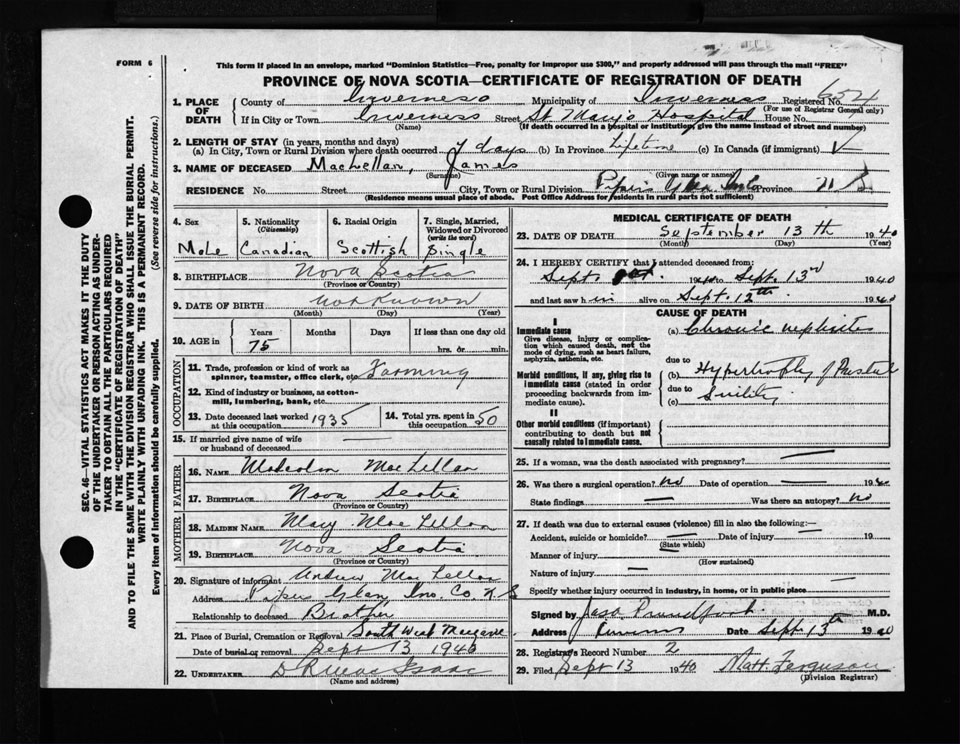 FORM 6
This form if placed in an envelope, marked "Dominion Statistics—Free, penalty for improper use $300," and properly addressed will pass through the mail "FREE"
PROVINCE OF NOVA SCOTIA—CERTIFICATE OF REGISTRATION OF DEATH
1. PLACE OF DEATH County of Inverness Municipality of Inverness Registered No.
(For use of Registrar General only)
If in City or Town Inverness Street St Mary's Hospital House No.
(Name) (If death occurred in a hospital or institution, give the name instead of street and number)
2. LENGTH OF STAY (in years, months and days)
(a) In City, Town or Rural Division where death occurred 7 days (b) In Province Lifetime (c) In Canada (if immigrant)
3. NAME OF DECEASED MacLellan, James
(Surname) (Given name or names)
RESIDENCE No. Street City, Town or Rural Division Pipers Glen Province N S
(Residence means usual place of abode. Post Office Address for residents in rural parts not sufficient)
4. Sex 5. Nationality (Citizenship) 6. Racial Origin 7. Single, Married, Widowed or Divorced (write the word)
Male Canadian Scottish Single
8. BIRTHPLACE Nova Scotia
(Province or Country)
9. DATE OF BIRTH Not Known
(Month) (Day) (Year)
10. AGE in Years Months Days If less than one day old
75 hrs. or min.
OCCUPATION
11. Trade, profession or kind of work as spinner, teamster, office clerk, etc. Farming
12. Kind of industry or business, as cotton-mill, lumbering, bank, etc.
13. Date deceased last worked at this occupation 1935 14. Total yrs. spent in this occupation 50
15. If married give name of wife or husband of deceased —
FATHER
16. NAME Malcolm MacLellan
17. BIRTHPLACE Nova Scotia
(Province or Country)
MOTHER
18. MAIDEN NAME Mary MacLellan
19. BIRTHPLACE Nova Scotia
(Province or Country)
20. Signature of informant Andrew MacLellan
Address Pipers Glen Inv. Co. N S
Relationship to deceased Brother
21. Place of Burial, Cremation or Removal South West Margaree
Date of burial or removal Sept 13 1940
22. UNDERTAKER
(Name and address)
MEDICAL CERTIFICATE OF DEATH
23. DATE OF DEATH September 13th 1940
(Month) (Day) (Year)
24. I HEREBY CERTIFY that I attended deceased from:
Sept. 1940 to Sept. 13 1940
and last saw him alive on Sept. 12th 1940
CAUSE OF DEATH
I
Immediate cause
Give disease, injury or complication which caused death, not the mode of dying, such as heart failure, asphyxia, asthenia, etc.
(a) Chronic nephritis
due to
Morbid conditions, if any, giving rise to immediate cause (stated in order proceeding backwards from immediate cause).
(b) Hypertrophy of
due to
(c) Senility
II
Other morbid conditions (if important) contributing to death but not causally related to immediate cause.
25. If a woman, was the death associated with pregnancy? —
26. Was there a surgical operation? no Date of operation — 1940
State findings — Was there an autopsy? no
27. If death was due to external causes (violence) fill in also the following:—
Accident, suicide or homicide? — Date of injury — 19
(State which)
Manner of injury
(How sustained)
Nature of injury —
Specify whether injury occurred in industry, in home, or in public place
Signed by M.D.
Address Inverness Date Sept. 13th 1940
28. Registrar's Record Number 2
29. Filed Sept 13 1940 Matt Ferguson
(Division Registrar)
SEC. 46—VITAL STATISTICS ACT MAKES IT THE DUTY
OF THE UNDERTAKER OR PERSON ACTING AS UNDER-
TAKER TO OBTAIN ALL THE PARTICULARS REQUIRED
IN THE "CERTIFICATE OF REGISTRATION OF DEATH"
AND TO FILE THE SAME WITH THE DIVISION REGISTRAR WHO SHALL ISSUE THE BURIAL PERMIT.
WRITE PLAINLY WITH UNFADING INK. THIS IS A PERMANENT RECORD.
Every item of Information should be carefully supplied. (See reverse side for instructions.)